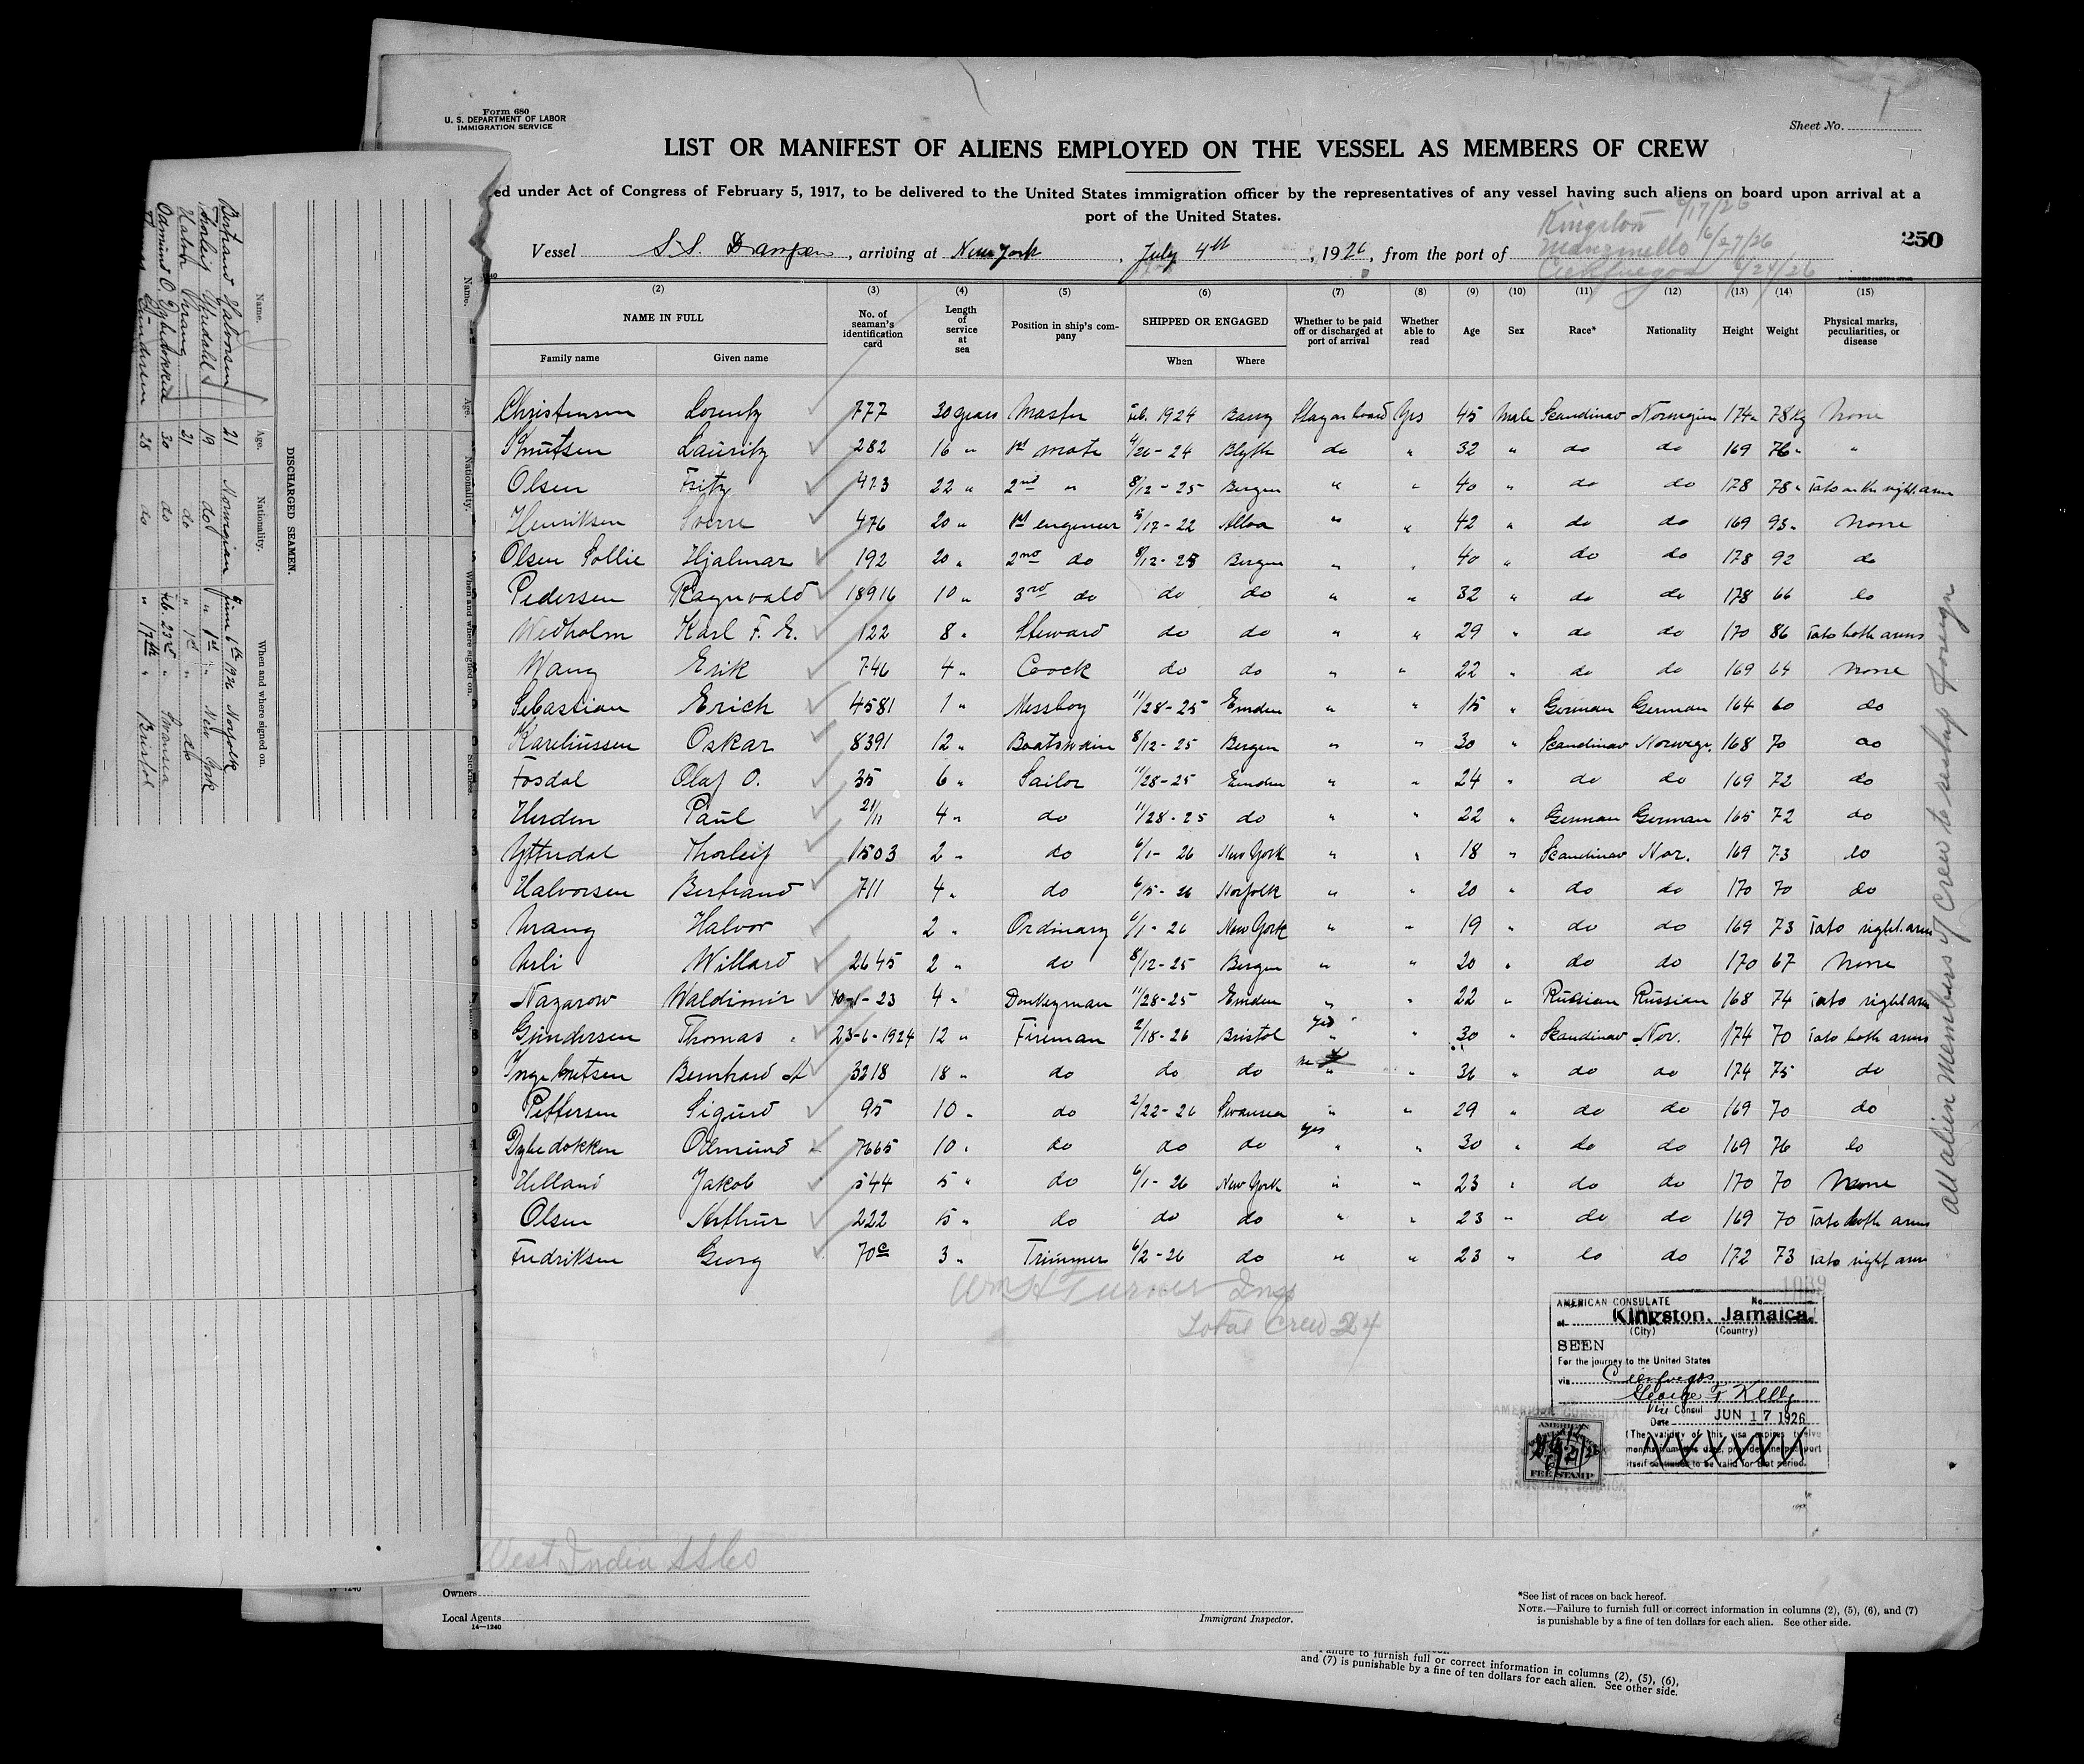 Form 680
U. S. DEPARTMENT OF LABOR
IMMIGRATION SERVICE
Sheet No. 1
LIST OR MANIFEST OF ALIENS EMPLOYED ON THE VESSEL AS MEMBERS OF CREW
ed under Act of Congress of February 5, 1917, to be delivered to the United States immigration officer by the representatives of any vessel having such aliens on board upon arrival at a
port of the United States.
Kingston 6/17/26
Manzinello 6/27/26
Cienfuegos 6/24/26
250
Vessel S.S. , arriving at New York , July 4th , 1926, from the port of
(2) (3) (4) (5) (6) (7) (8) (9) (10) (11) (12) (13) (14) (15)
NAME IN FULL No. of seaman's identification card Length of service at sea Position in ship's company SHIPPED OR ENGAGED Whether to be paid off or discharged at port of arrival Whether able to read Age Sex Race* Nationality Height Weight Physical marks, peculiarities, or disease
Family name Given name When Where
Christensen Lorentz 777 30 years Master Feb. 1924 Barry Stay on board Yes 45 Male Scandinav Norwegian 174 78 Kg None
Knutsen Lauritz 282 16 " 1st mate 4/26-24 Blyth do " 32 " do do 169 76 " "
Olsen Fritz 473 22 " 2nd " 8/12-25 Bergen " " 40 " do do 178 78 " Tato on the right arm
Henriksen Sverre 476 20 " 1st engineer 5/17-22 Alloa " " 42 " do do 169 93 " None
Olsen Sollie Hjalmar 192 20 " 2nd do 8/12-25 Bergen " " 40 " do do 178 92 do
Pedersen Ragnvald 18916 10 " 3rd do do do " " 32 " do do 178 66 do
Wedholm Karl F. E. 122 8 " Steward do do " " 29 " do do 170 86 Tato both arms
Wang Erik 746 4 " Coock do do " " 22 " do do 169 64 None
Sebastian Erich 4581 1 " Messboy 11/28-25 Emden " " 15 " German German 164 60 do
Kareliussen Oskar 8391 12 " Boatswain 8/12-25 Bergen " " 30 " Scandinav Norweg. 168 70 do
Fosdal Olaf O. 35 6 " Sailor 11/28-25 Emden " " 24 " do do 169 72 do
Herden Paul 21/11 4 " do 11/28-25 do " " 22 " German German 165 72 do
Yttredal Thorleif 1503 2 " do 6/1-26 New York " " 18 " Scandinav Nor. 169 73 do
Halvorsen Bertrand 711 4 " do 6/5-26 Norfolk " " 20 " do do 170 70 do
Vrang Halvor 2 " Ordinary 6/1-26 New York " " 19 " do do 169 73 Tato right arm
Willard 2645 2 " do 8/12-25 Bergen " " 20 " do do 170 67 None
Nazarow Waldimir 10-1-23 4 " Donkeyman 11/28-25 Emden " " 22 " Russian Russian 168 74 Tato right arm
Gundersen Thomas 23-6-1924 12 " Fireman 2/18-26 Bristol yes " " 30 " Scandinav Nor. 174 70 Tato both arms
Ingebretsen Bernhard A 3218 18 " do do do no " " 36 " do do 174 75 do
Pettersen Sigurd 95 10 " do 2/22-26 Swansea " " 29 " do do 169 70 do
Dybedokken Odmund 7665 10 " do do do yes " " 30 " do do 169 76 do
Helland Jakob 544 5 " do 6/1-26 New York " " 23 " do do 170 70 None
Olsen Arthur 222 5 " do do do " " 23 " do do 169 70 Tato both arms
Fredriksen Georg 70c 3 " Trimmer 6/2-26 do " " 23 " do do 172 73 Tato right arm
Wm H Turner Insp
Total Crew 24
All alien members of crew to reship foreign
1039
AMERICAN CONSULATE No.
at Kingston, Jamaica.
(City) (Country)
SEEN
For the journey to the United States
via Cienfuegos
George F Kelly
Vice Consul
Date JUN 17 1926
(The validity of this visa expires twelve
months from this date, provided the passport
itself continues to be valid for that period.
AMERICAN CONSULATE
AMERICAN
FEE STAMP
KINGSTON, JAMAICA
West India SS Co
Owners
Local Agents
14—1240
Immigrant Inspector.
*See list of races on back hereof.
NOTE.—Failure to furnish full or correct information in columns (2), (5), (6), and (7)
is punishable by a fine of ten dollars for each alien. See other side.
Failure to furnish full or correct information in columns (2), (5), (6),
and (7) is punishable by a fine of ten dollars for each alien. See other side.
DISCHARGED SEAMEN.
Name. Age. Nationality. When and where signed on.
Bertrand Halvorsen 21 Norwegian June 6th 1926 Norfolk
Thorleif Yttredahl 19 do " 1st " New York
Halvor Vrang 21 do " 1st " do
Odmund O. Dybedokken 30 do Feb. 23rd " Swansea
Thomas Gundersen 28 do " 17th " Bristol
Name. Age. Nationality. When and where signed on. Sickness